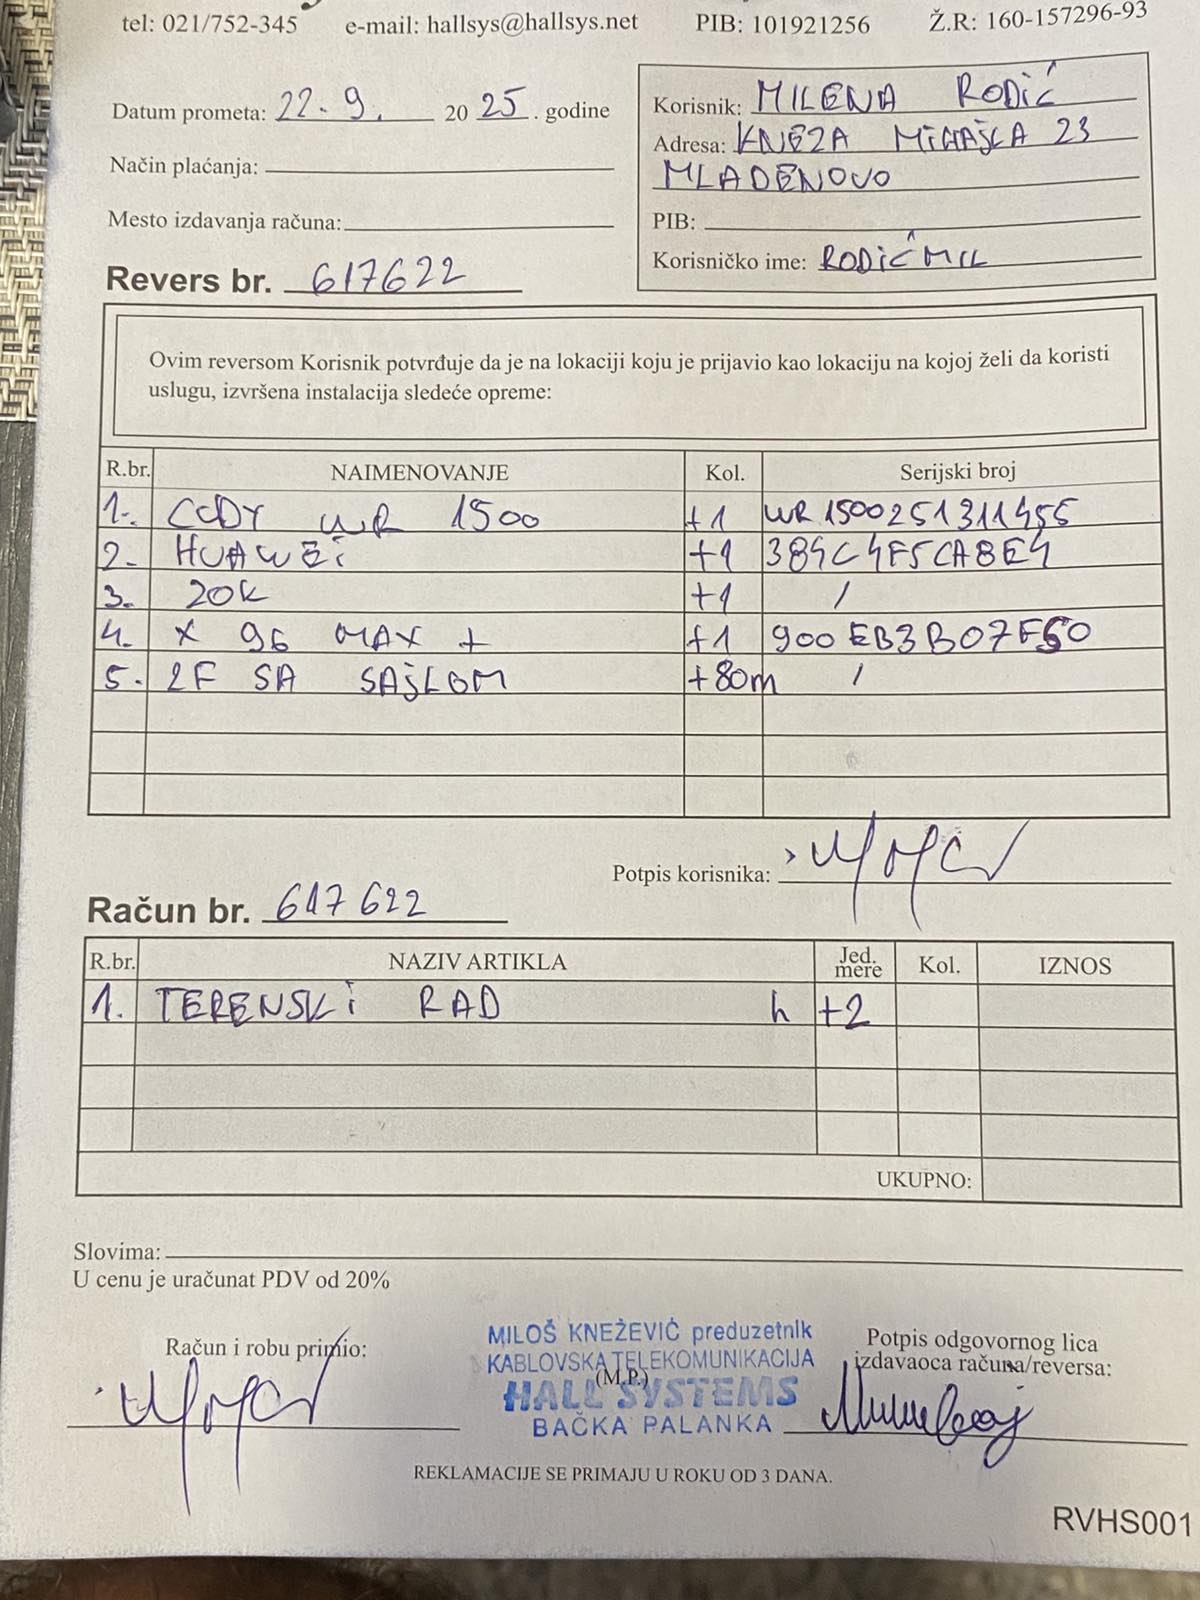 tel: 021/752-345 e-mail: hallsys@hallsys.net PIB: 101921256 Ž.R: 160-157296-93
Datum prometa: 22.9. 20 25. godine
Način plaćanja:
Mesto izdavanja računa:
Revers br. 617622
Korisnik: MILENA RODIĆ
Adresa: KNEZA MIHAJLA 23
MLADENOVO
PIB:
Korisničko ime: RODIĆMIL
Ovim reversom Korisnik potvrđuje da je na lokaciji koju je prijavio kao lokaciju na kojoj želi da koristi
uslugu, izvršena instalacija sledeće opreme:
R.br. NAIMENOVANJE Kol. Serijski broj
1. CUDY WR 1500 +1 WR1500251311455
2. HUAWEI +1 384C4F5CA8E4
3. ZOK +1 /
4. X 96 MAX + +1 900EB3B07F50
5. 2F SA SAJLOM +80m /
Potpis korisnika:
Račun br. 617622
R.br. NAZIV ARTIKLA Jed. mere Kol. IZNOS
1. TERENSKI RAD h +2
UKUPNO:
Slovima:
U cenu je uračunat PDV od 20%
Račun i robu primio:
MILOŠ KNEŽEVIĆ preduzetnik
KABLOVSKA TELEKOMUNIKACIJA
(M.P.)
HALL SYSTEMS
BAČKA PALANKA
Potpis odgovornog lica
izdavaoca računa/reversa:
REKLAMACIJE SE PRIMAJU U ROKU OD 3 DANA.
RVHS001